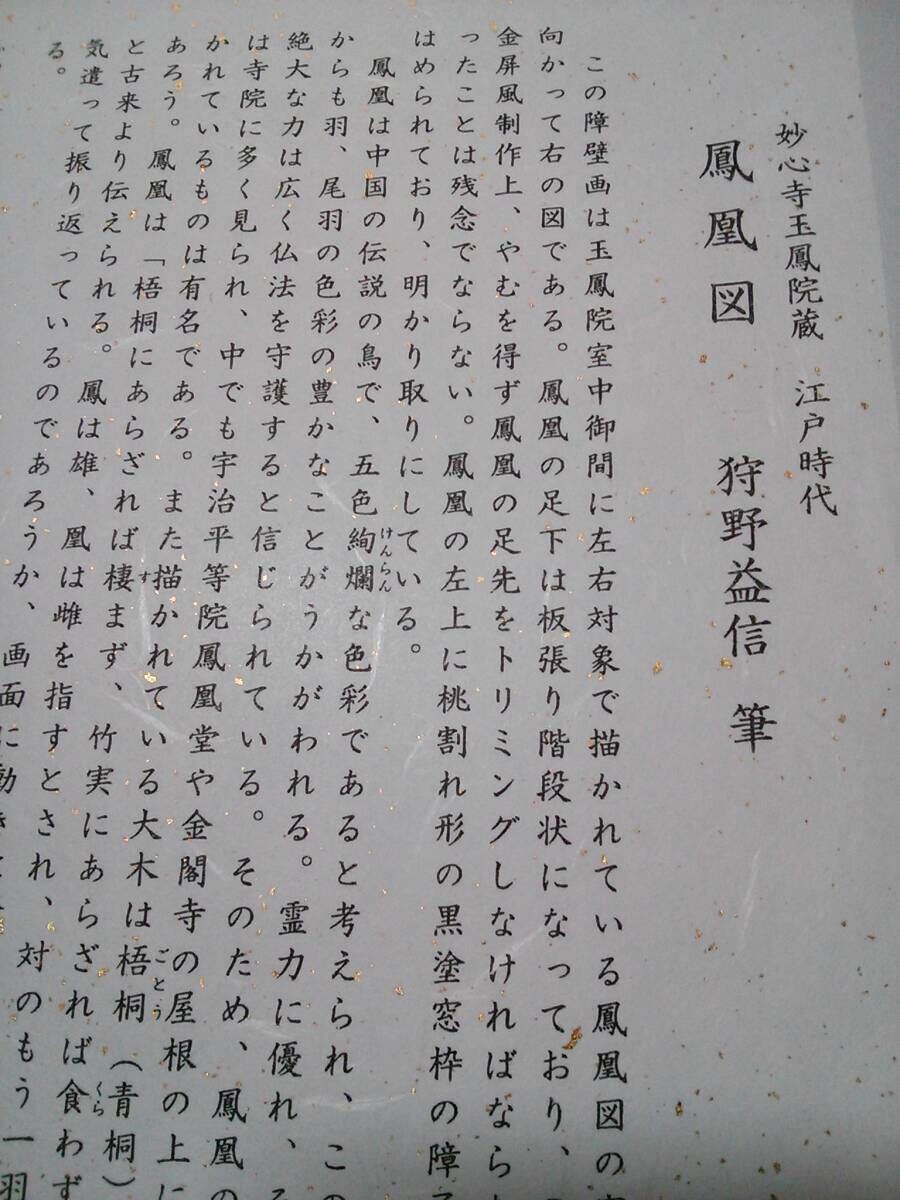 妙心寺玉鳳院蔵　江戸時代
鳳凰図　狩野益信　筆
この障壁画は玉鳳院室中御間に左右対象で描かれている鳳凰図の
向かって右の図である。鳳凰の足下は板張り階段状になっており、
金屏風制作上、やむを得ず鳳凰の足先をトリミングしなければなら
ったことは残念でならない。鳳凰の左上に桃割れ形の黒塗窓枠の障
はめられており、明かり取りにしている。
鳳凰は中国の伝説の鳥で、五色絢爛けんらんな色彩であると考えられ、こ
からも羽、尾羽の色彩の豊かなことがうかがわれる。霊力に優れ、
絶大な力は広く仏法を守護すると信じられている。そのため、鳳凰の
は寺院に多く見られ、中でも宇治平等院鳳凰堂や金閣寺の屋根の上に
かれているものは有名である。また描かれている大木は梧桐ごとう（青桐）
あろう。鳳凰は「梧桐にあらざれば棲すまず、竹実にあらざれば食くらわず
と古来より伝えられる。鳳は雄、凰は雌を指すとされ、対のもう一羽
気遣って振り返っているのであろうか、画面に動き
る。